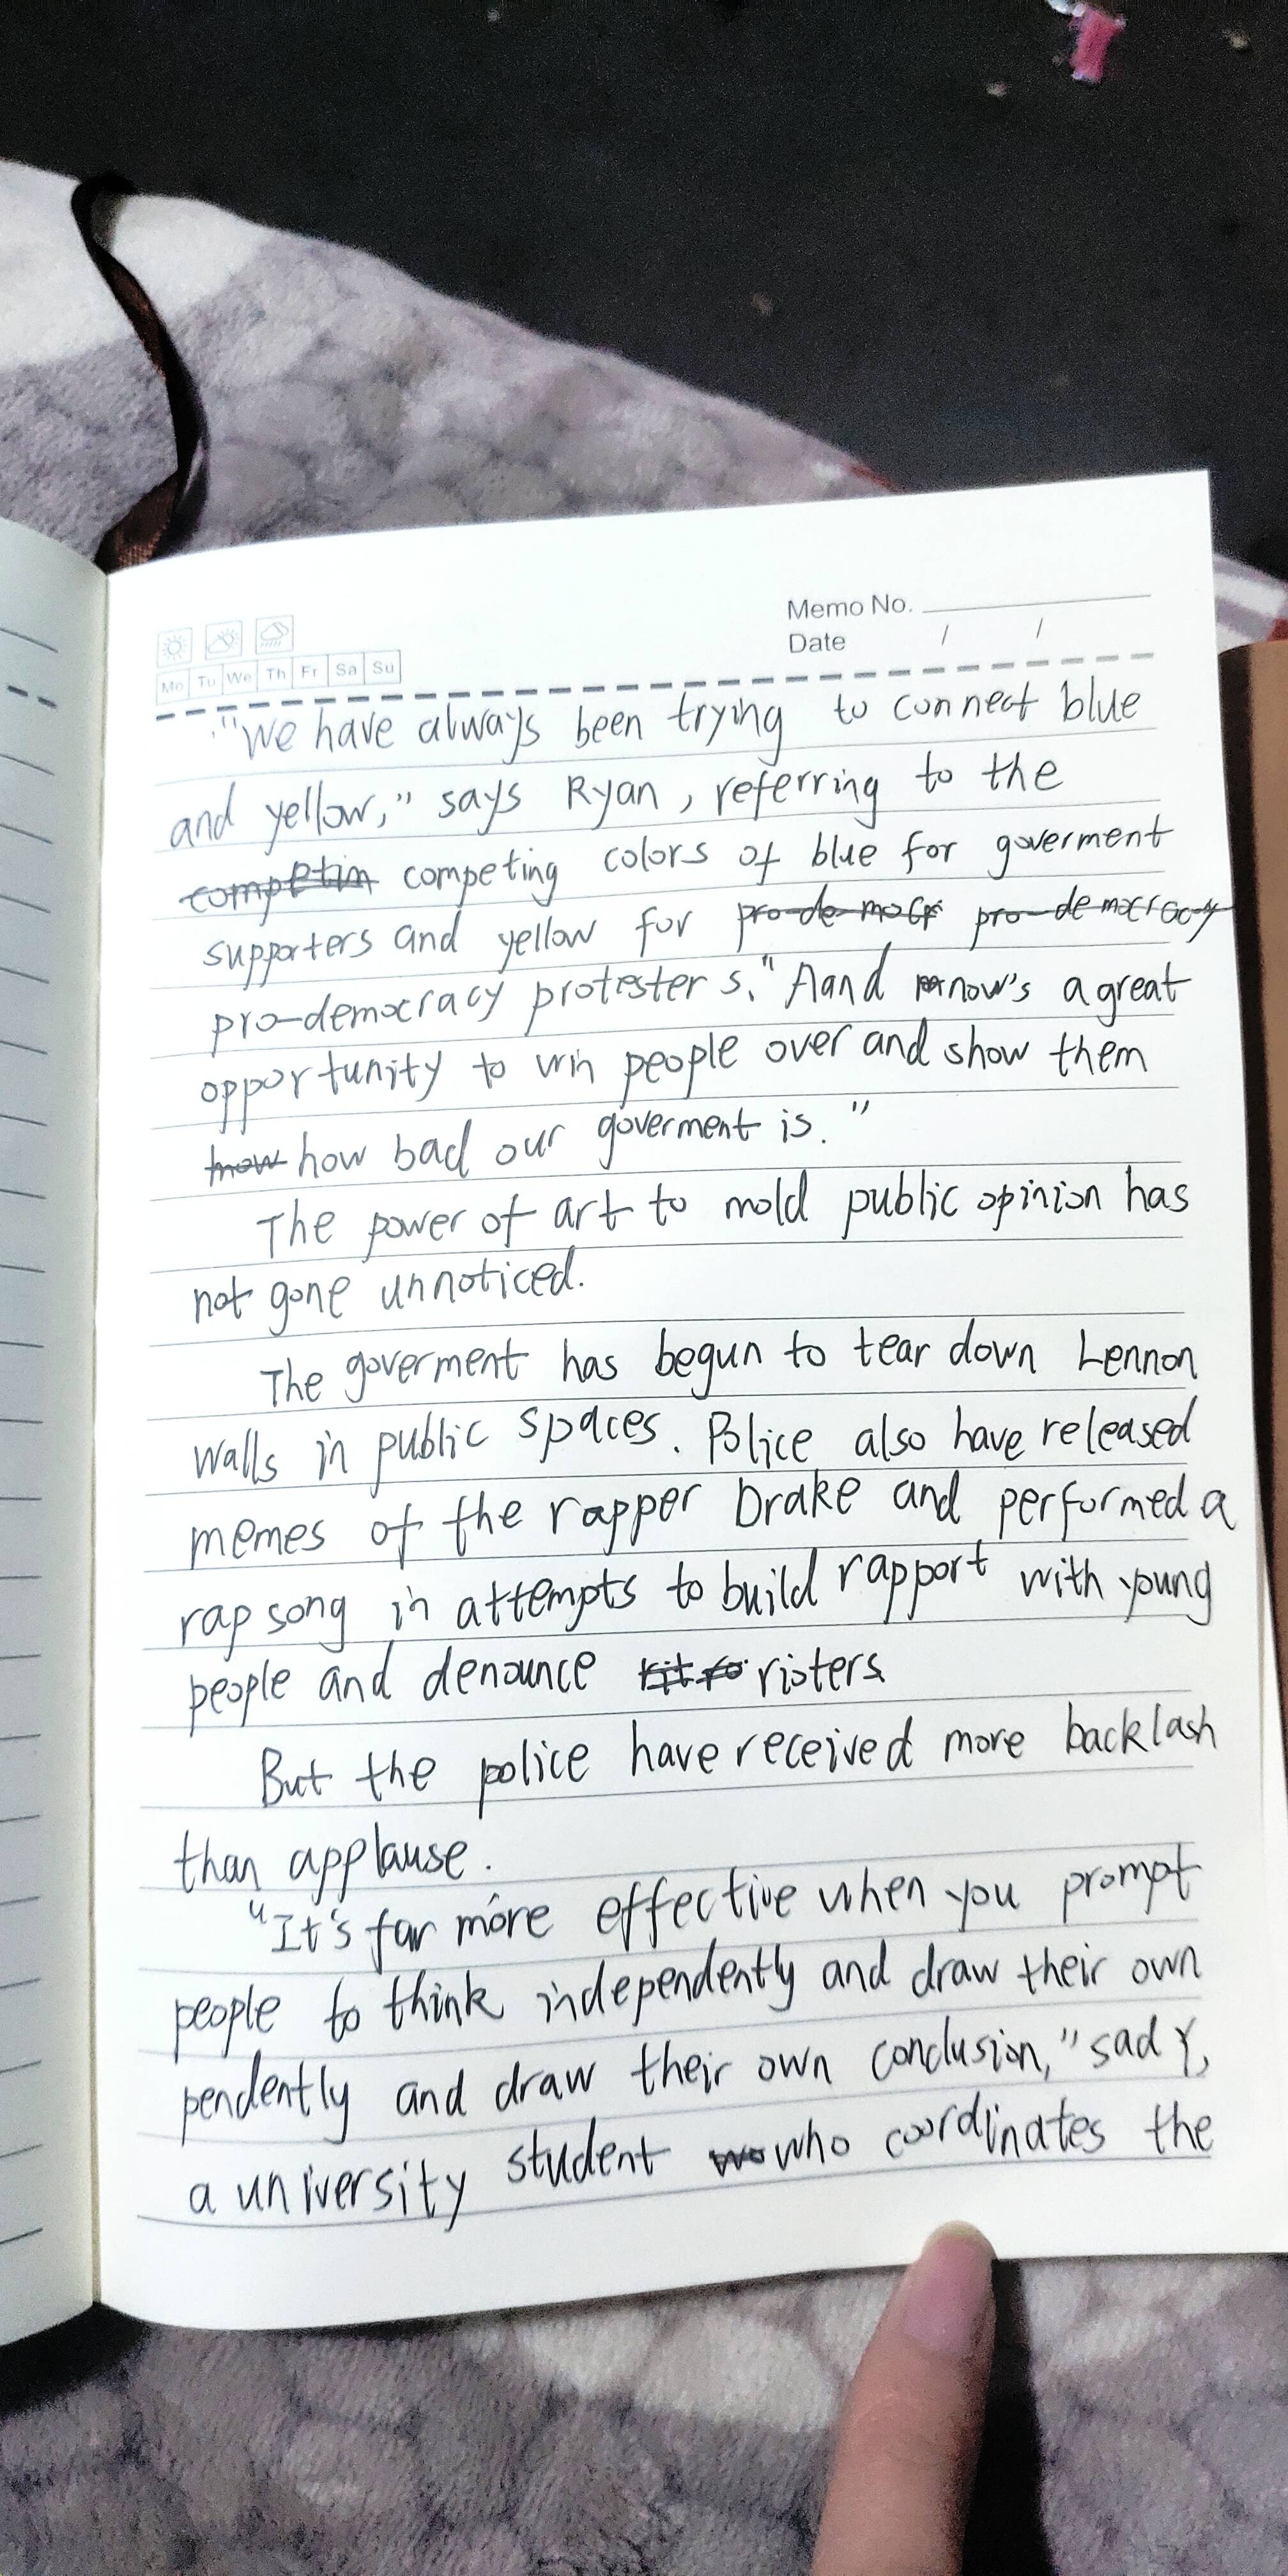 Memo No.
Date / /
Mo Tu We Th Fr Sa Su
"We have always been trying to connect blue
and yellow," says Ryan, referring to the
competin competing colors of blue for goverment
supporters and yellow for pro-democr pro-democracy
pro-democracy protesters. "Aand now's a great
opportunity to win people over and show them
how bad our goverment is."
The power of art to mold public opinion has
not gone unnoticed.
The goverment has begun to tear down Lennon
walls in public spaces. Police also have released
memes of the rapper Drake and performed a
rap song in attempts to build rapport with young
people and denounce rioters.
But the police have received more backlash
than applause.
"It's far more effective when you prompt
people to think independently and draw their own
pendently and draw their own conclusion," sad Y,
a university student wo who coordinates the